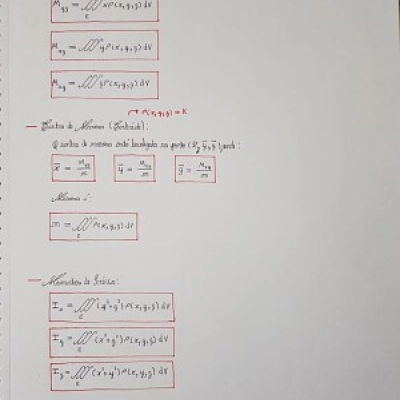 M_yz = ∭_E xρ(x,y,z) dV
M_xz = ∭_E yρ(x,y,z) dV
M_xy = ∭_E zρ(x,y,z) dV
→ ρ(x,y,z) = K
— Centro de Massa (Centroide):
O centro de massa está localizado no ponto (x̄, ȳ, z̄), onde:
x̄ = M_yz/m ȳ = M_xz/m z̄ = M_xy/m
Massa é:
m = ∭_E ρ(x,y,z) dV
— Momentos de Inércia:
I_x = ∭_E (y²+z²) ρ(x,y,z) dV
I_y = ∭_E (x²+z²) ρ(x,y,z) dV
I_z = ∭_E (x²+y²) ρ(x,y,z) dV